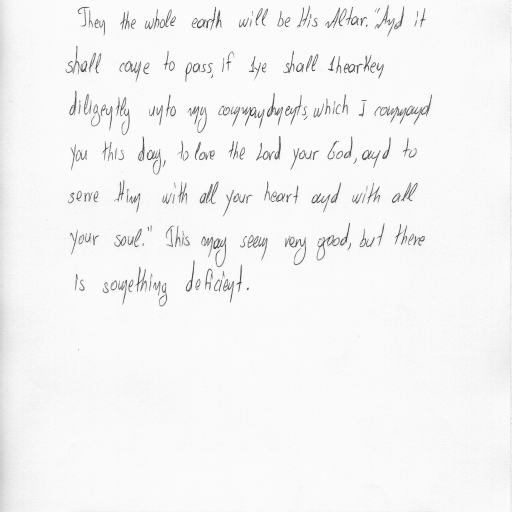 Then the whole earth will be His Altar. "And it
shall come to pass, if ye shall hearken
diligently unto my commandments, which I command
you this day, to love the Lord your God, and to
serve Him with all your heart and with all
your soul." This may seem very good, but there
is something deficient.